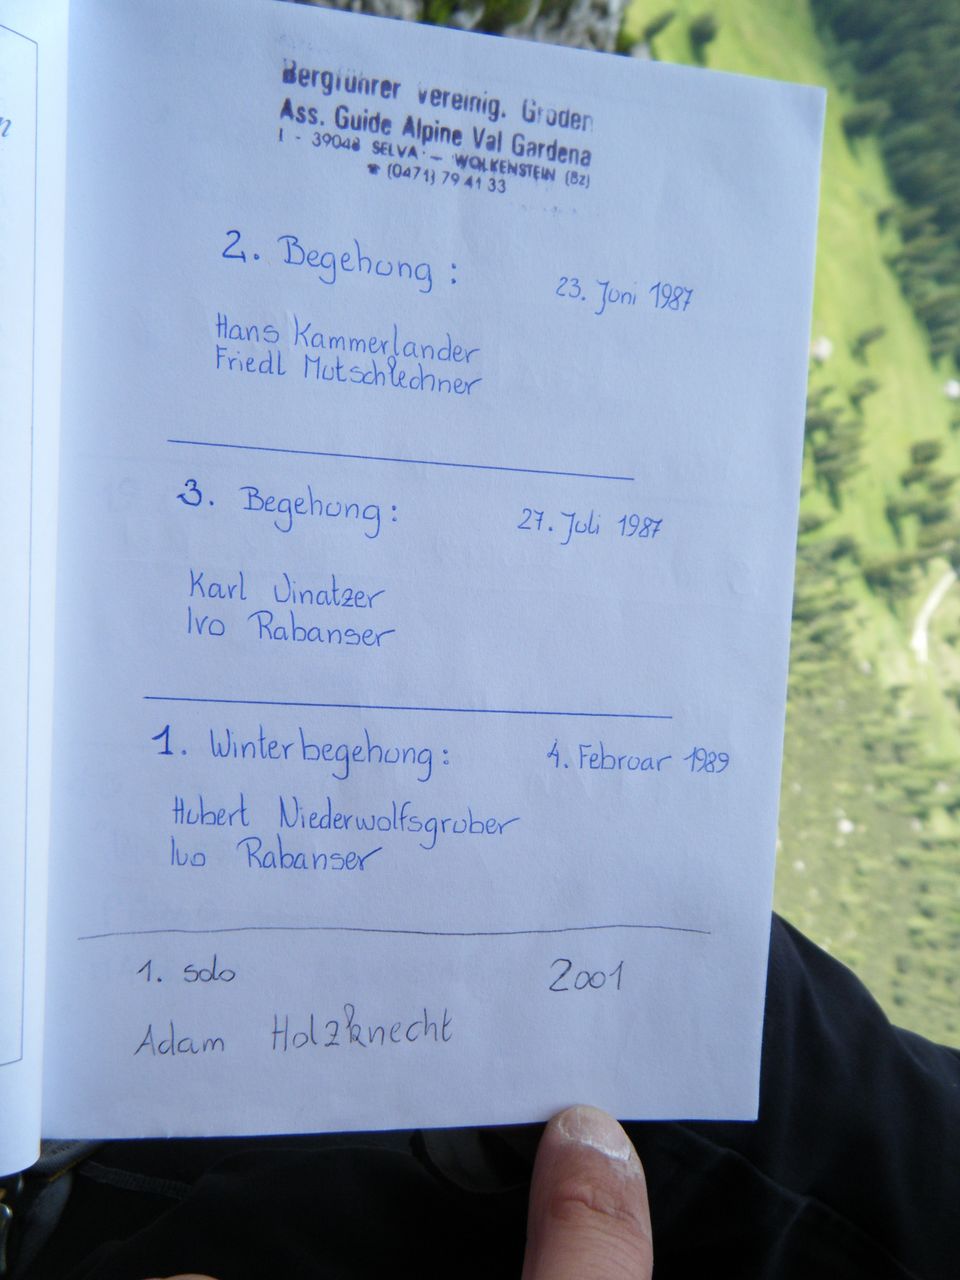 Bergführer vereinig. Gröden
Ass. Guide Alpine Val Gardena
I - 39048 SELVA - WOLKENSTEIN (Bz)
☎ (0471) 79 41 33
2. Begehung : 23. Juni 1987
Hans Kammerlander
Friedl Mutschlechner
3. Begehung : 27. Juli 1987
Karl Vinatzer
Ivo Rabanser
1. Winterbegehung : 4. Februar 1989
Hubert Niederwolfsgruber
Ivo Rabanser
1. solo 2001
Adam Holzknecht